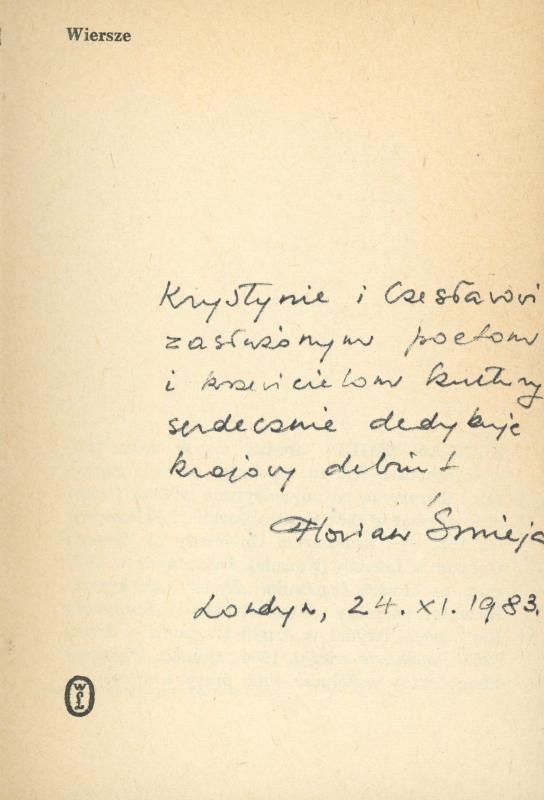 Wiersze
Krystynie i Czesławowi
zasłużonym poetom
i krzewicielom kultury
serdecznie dedykuje
krajowy debiut
Florian Śmieja
Londyn, 24.XI.1983.
WL